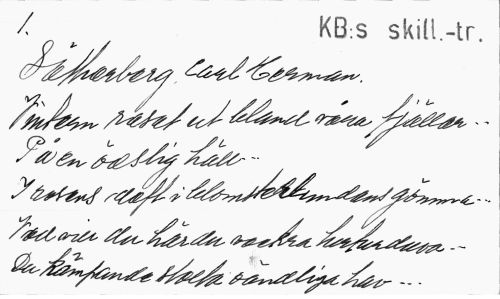 1.
KB:s skill.-tr.
Sätherberg, Carl Herman.
Vintern rasat ut bland våra fjällar --
På en ödslig häll --
I rosens doft i blomsterlundens gömma ---
Vad vill du här du vackra turturduva --
Du kämpande stolta oändliga hav ---